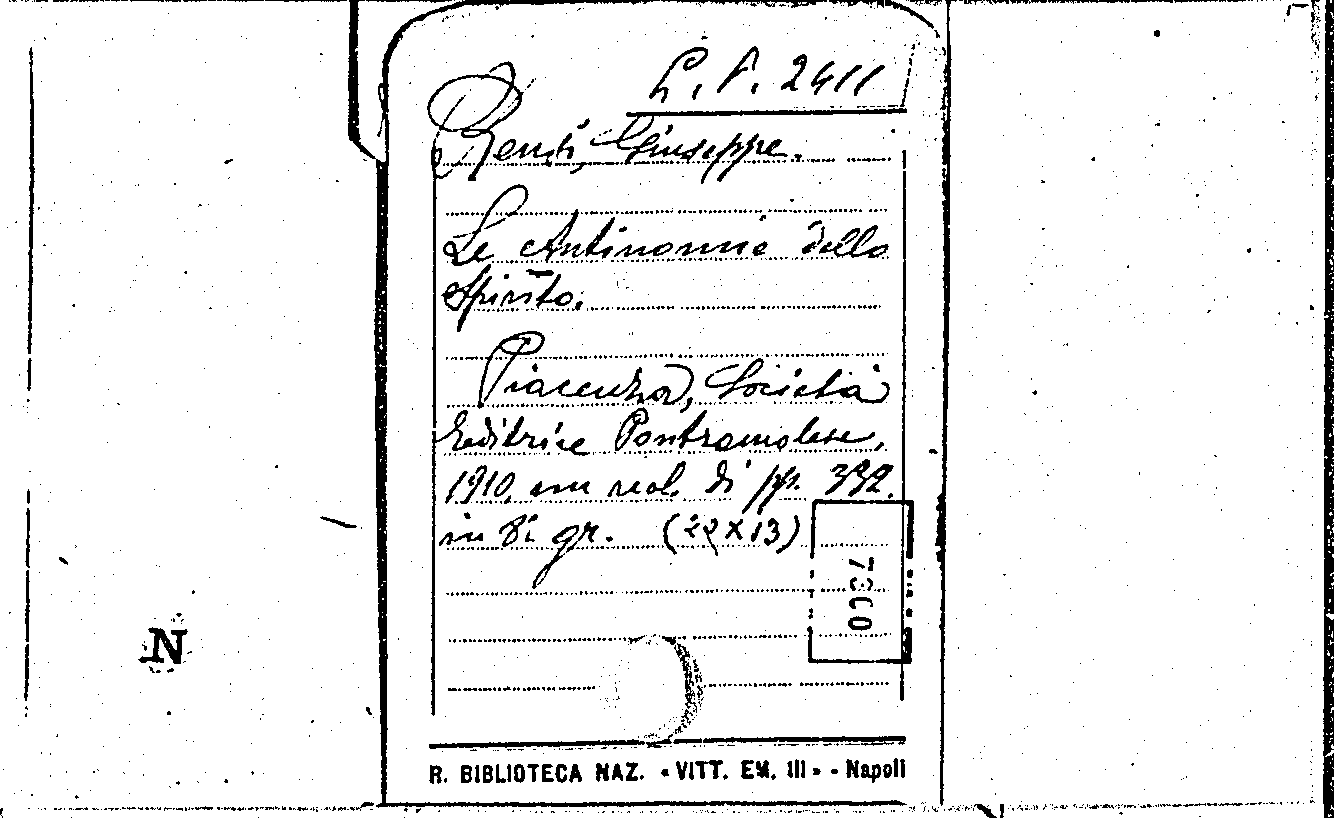 L. P. 2411
Rensi, Giuseppe.
Le Antinomie dello
Spirito.
Piacenza, Società
Editrice Pontremolese,
1910, un vol. di pp. 332.
in 8º gr. (22 X 13)
7300
N
R. BIBLIOTECA NAZ. « VITT. EM. III » - Napoli